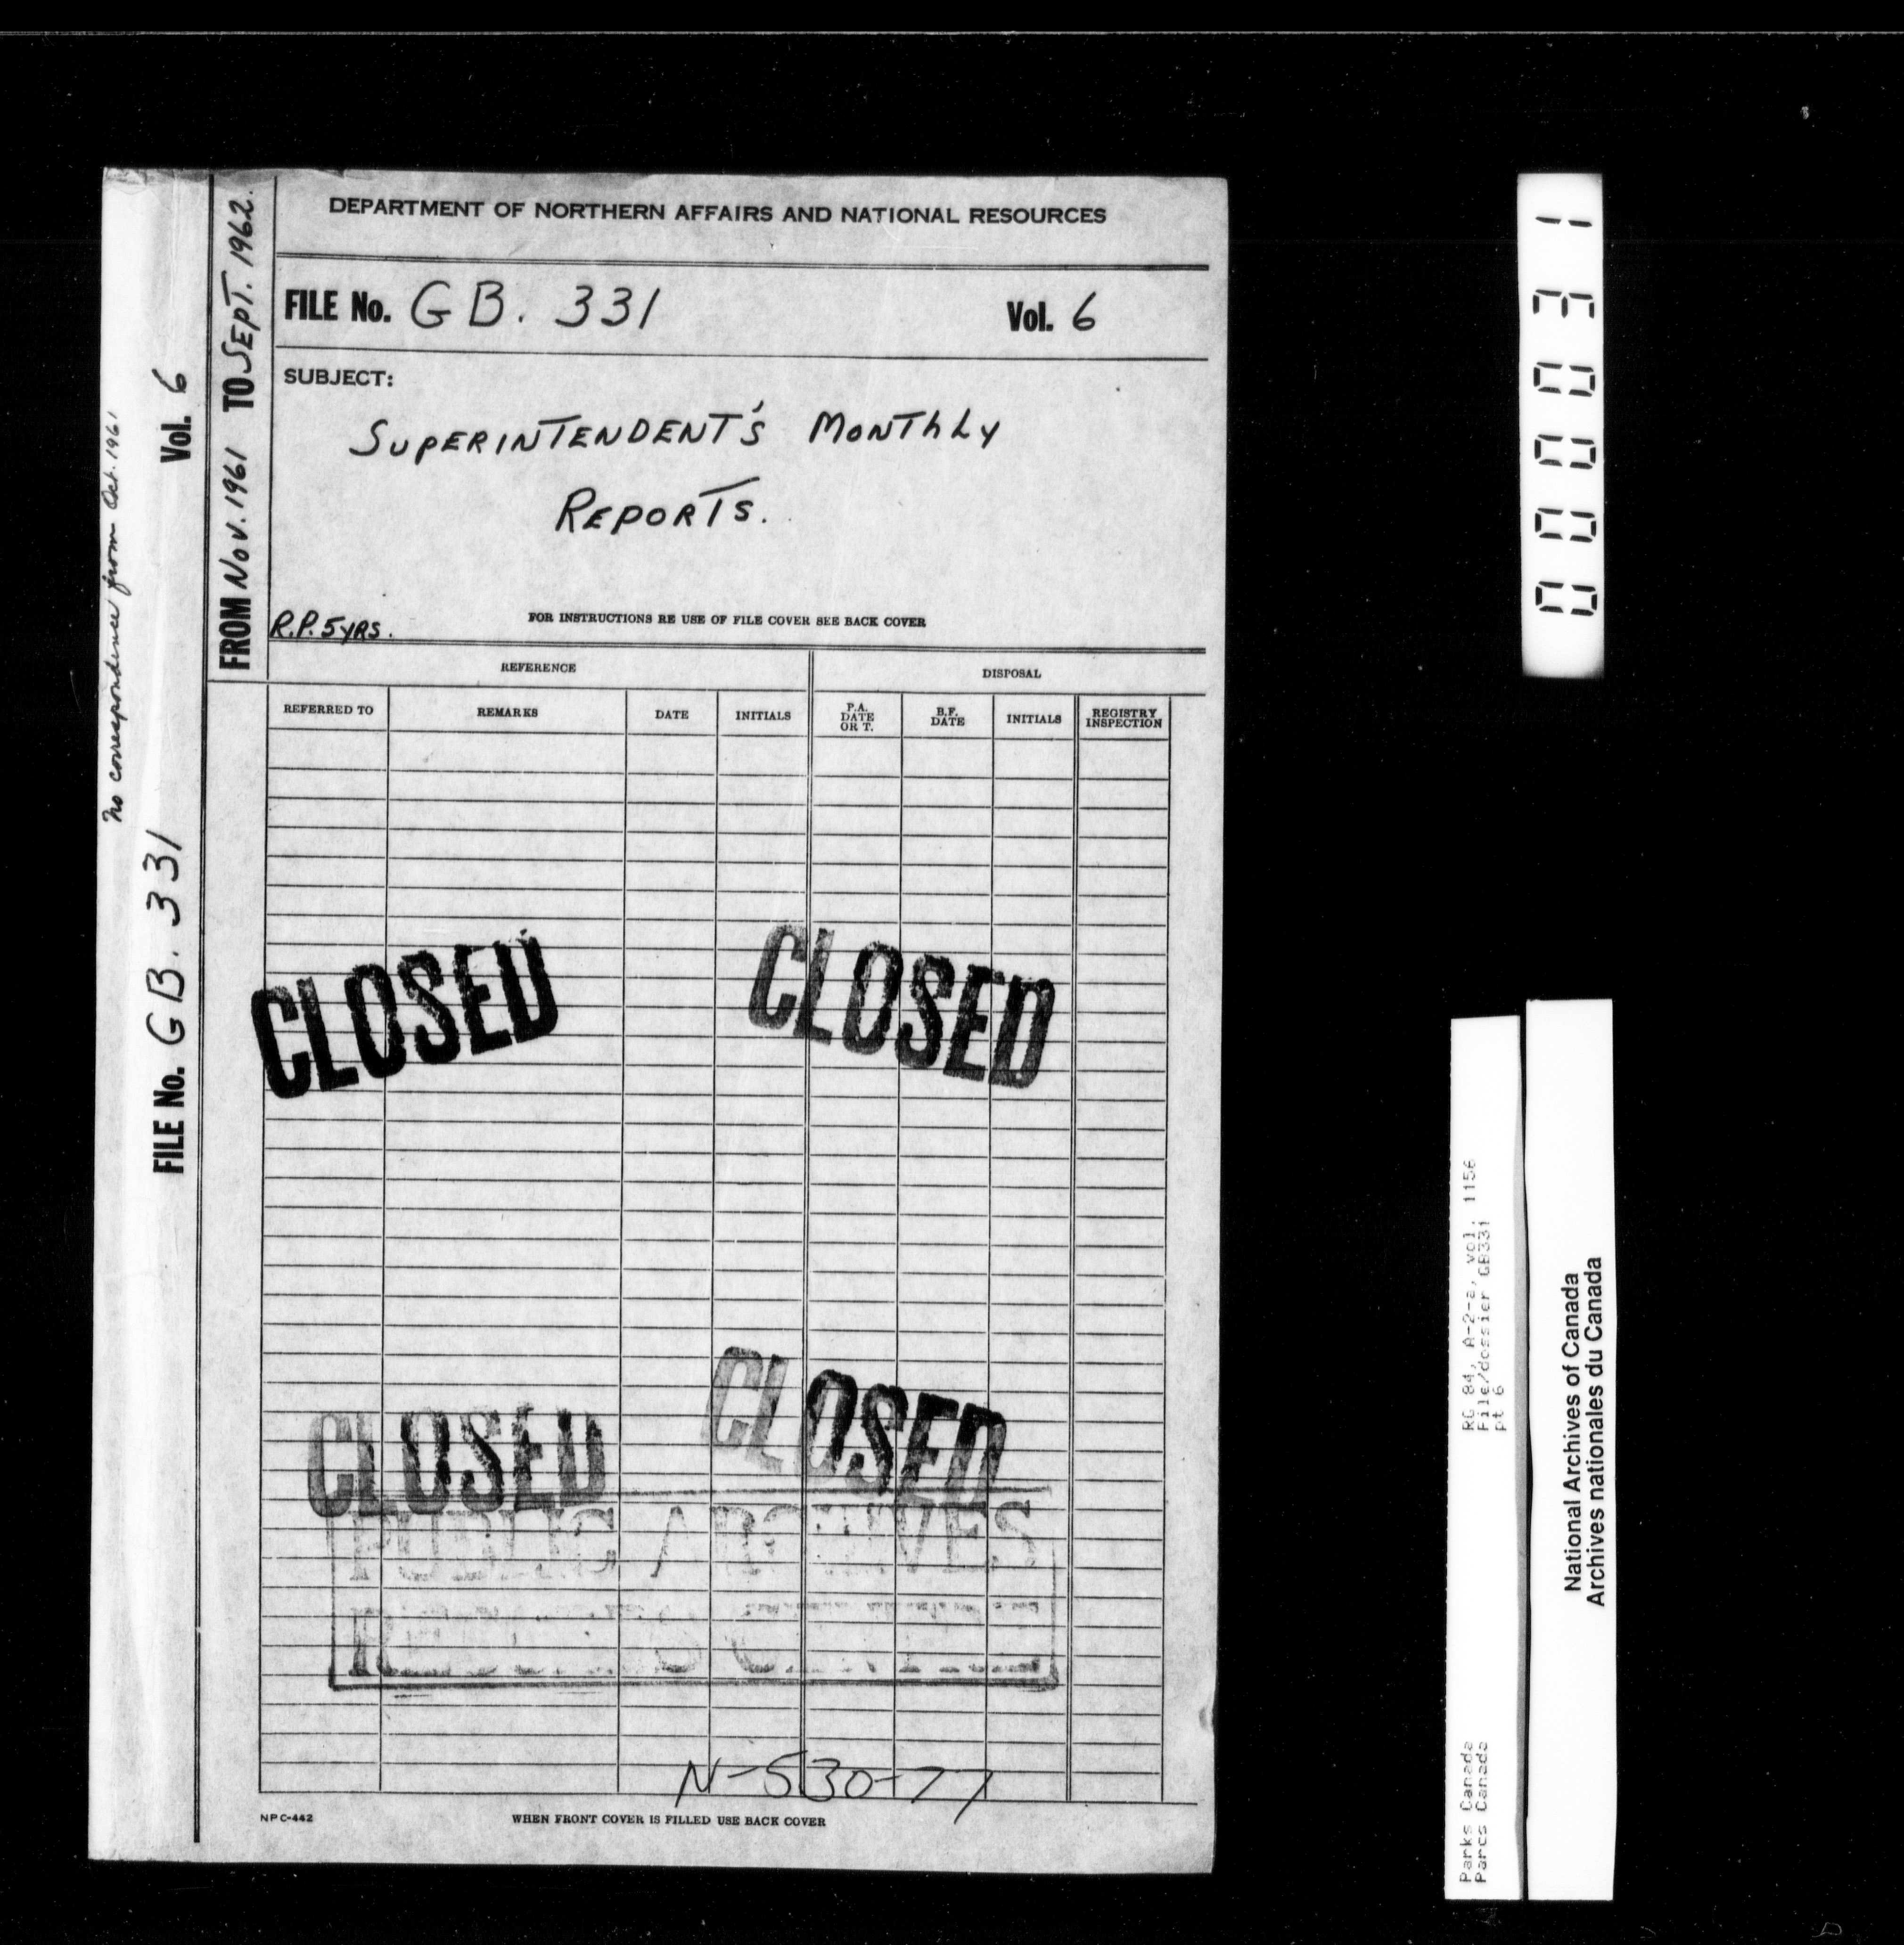 DEPARTMENT OF NORTHERN AFFAIRS AND NATIONAL RESOURCES
FILE No. GB. 331 Vol. 6
SUBJECT:
SUPERINTENDENT'S MONTHLY
REPORTS.
R.P. 5 YRS.
FOR INSTRUCTIONS RE USE OF FILE COVER SEE BACK COVER
FROM NOV. 1961 TO SEPT. 1962.
No correspondence from Oct. 1961
FILE No. GB. 331 Vol. 6
REFERENCE DISPOSAL
REFERRED TO REMARKS DATE INITIALS P.A. DATE OR T. B.F. DATE INITIALS REGISTRY INSPECTION
CLOSED CLOSED
CLOSED CLOSED
PUBLIC ARCHIVES
N-530-77
NPC-442 WHEN FRONT COVER IS FILLED USE BACK COVER
000031
Parks Canada RG 84, A-2-a, vol. 1156
Parcs Canada File/dossier GB331
pt 6
National Archives of Canada
Archives nationales du Canada